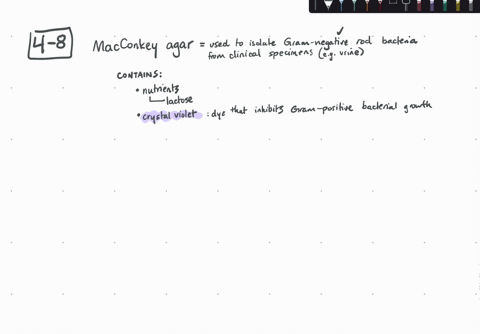 4-8
MacConkey agar = used to isolate Gram-negative rod bacteria
from clinical specimens (e.g. urine)
CONTAINS:
• nutrients
lactose
• crystal violet : dye that inhibits Gram-positive bacterial growth